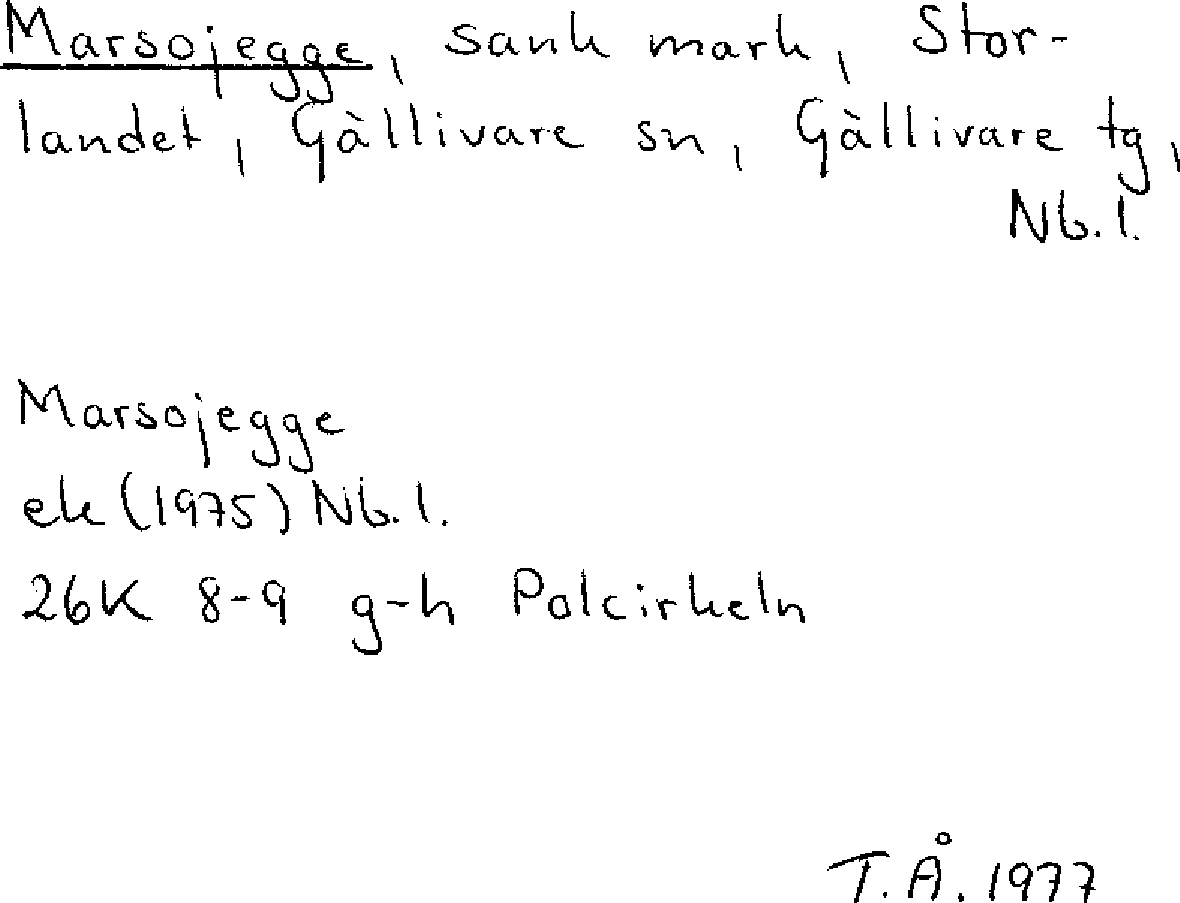 Marsojegge, sank mark, Stor-
landet, Gàllivare sn, Gàllivare tg,
Nb. l.
Marsojegge
ek (1975) Nb. l.
26K 8-9 g-h Polcirkeln
T.Å. 1977